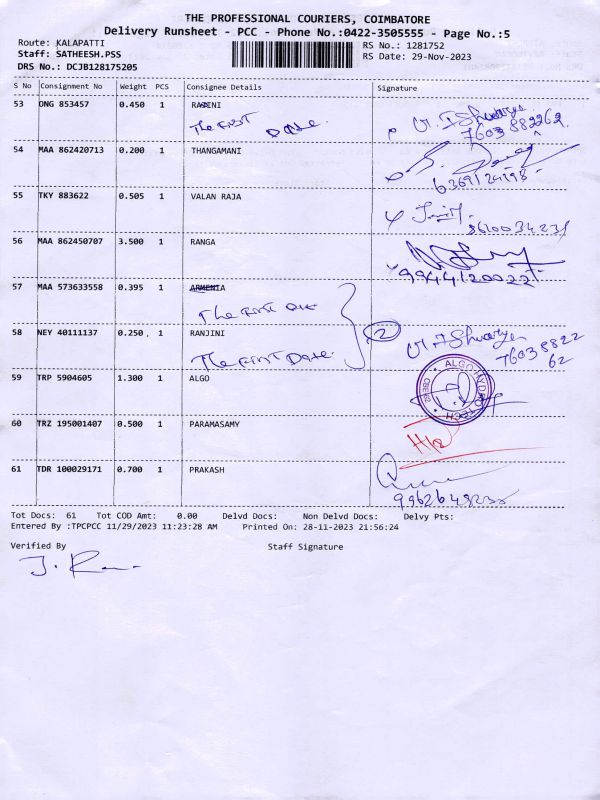 THE PROFESSIONAL COURIERS, COIMBATORE
Delivery Runsheet - PCC - Phone No.:0422-3505555 - Page No.:5
Route: KALAPATTI
RS No.: 1281752
Staff: SATHEESH.PSS
RS Date: 29-Nov-2023
DRS No.: DCJB128175205
S No Consignment No Weight PCS Consignee Details Signature
53 ONG 853457 0.450 1 RAJENI
The First Date.
7603882262
54 MAA 862420713 0.200 1 THANGAMANI
55 TKY 883622 0.505 1 VALAN RAJA
8610034231
56 MAA 862450707 3.500 1 RANGA
9944120022
57 MAA 573633558 0.395 1 ARMENIA
The First Date
58 NEY 40111137 0.250 1 RANJINI
2
The First Date.
76038822
62
59 TRP 5904605 1.300 1 ALGO
ALGO HYDRO TECH
60 TRZ 195001407 0.500 1 PARAMASAMY
61 TDR 100029171 0.700 1 PRAKASH
Tot Docs: 61 Tot COD Amt: 0.00 Delvd Docs: Non Delvd Docs: Delvy Pts:
Entered By :TPCPCC 11/29/2023 11:23:28 AM Printed On: 28-11-2023 21:56:24
Verified By Staff Signature